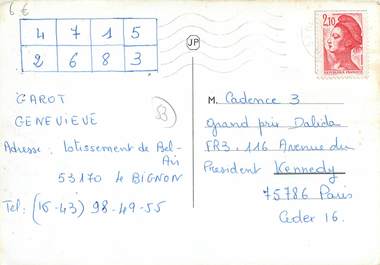 6 €
4 7 1 5
2 6 8 3
JP
2,10
REPUBLIQUE FRANCAISE
GAROT
GENEVIEVE
53
Adresse : lotissement de Bel-
Air
53170 le BIGNON
Tel: (16-43) 98-49-55
M. Cadence 3
Grand prix Dalida
FR3, 116 Avenue du
President Kennedy
75786 Paris
Ceder 16.